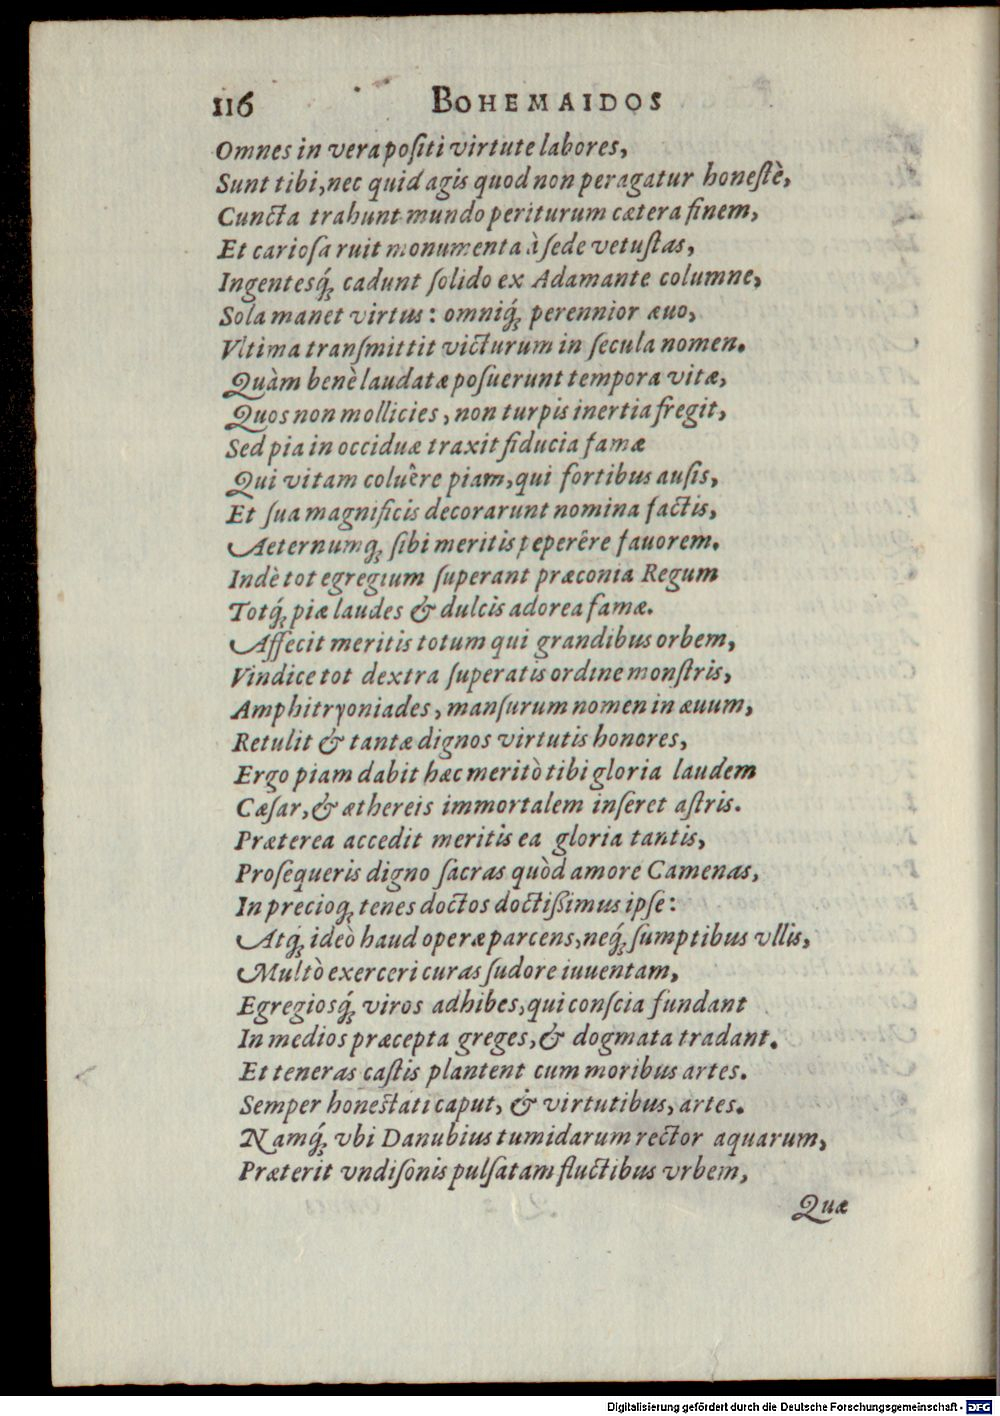 116 BOHEMAIDOS
Omnes in vera poſiti virtute labores,
Sunt tibi, nec quid agis quod non peragatur honeſtè,
Cuncta trahunt mundo periturum cætera finem,
Et carioſa ruit monumenta à ſede vetuſtas,
Ingentesq́; cadunt ſolido ex Adamante columne,
Sola manet virtus: omniq́; perennior æuo,
Vltima tranſmittit victurum in ſecula nomen.
Quàm benè laudatæ poſuerunt tempora vitæ,
Quos non mollicies, non turpis inertia fregit,
Sed pia in occiduæ traxit fiducia famæ
Qui vitam coluêre piam, qui fortibus auſis,
Et ſua magnificis decorarunt nomina factis,
Aeternumq; ſibi meritis peperêre fauorem.
Indè tot egregium ſuperant præconia Regum
Totq́; piæ laudes & dulcis adorea famæ.
Affecit meritis totum qui grandibus orbem,
Vindice tot dextra ſuperatis ordine monſtris,
Amphitryoniades, manſurum nomen in æuum,
Retulit & tantæ dignos virtutis honores,
Ergo piam dabit hæc meritò tibi gloria laudem
Cæſar, & æthereis immortalem inſeret aſtris.
Præterea accedit meritis ea gloria tantis,
Proſequeris digno ſacras quòd amore Camenas,
In precioq; tenes doctos doctißimus ipſe:
Atq́; ideò haud operæ parcens, neq́; ſumptibus vllis,
Multò exerceri curas ſudore iuuentam,
Egregiosq́; viros adhibes, qui conſcia fundant
In medios præcepta greges, & dogmata tradant.
Et teneras caſtis plantent cum moribus artes.
Semper honestati caput, & virtutibus, artes.
Namq́; vbi Danubius tumidarum rector aquarum,
Præterit vndiſonis pulſatam fluctibus vrbem,
Quæ
Digitalisierung gefördert durch die Deutsche Forschungsgemeinschaft - DFG